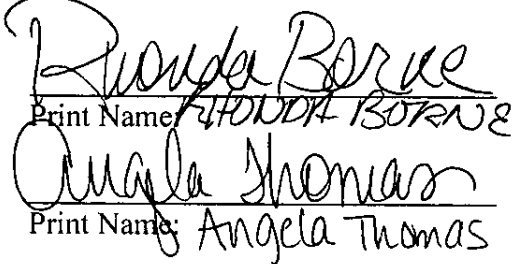 Rhonda Borne
Print Name: RHONDA BORNE
Angela Thomas
Print Name: Angela Thomas